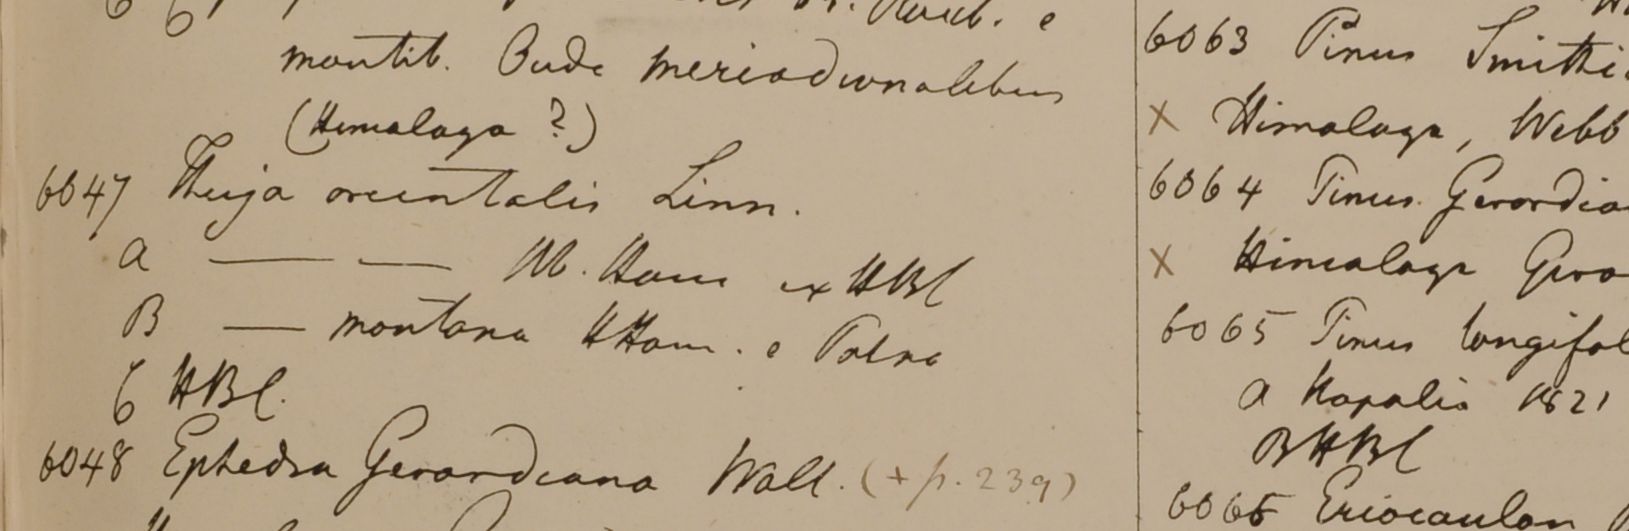 montib. Oude meriodionalibus
(Himalaya ?)
6047 Thuja orientalis Linn.
a — — Ham ex HBC
B — montana HHam. e Patna
6 HBC.
6048 Ephedra Gerardiana Wall. (+ p. 239)
6063 Pinus Smithi
x Himalaya, Webb
6064 Pinus Gerardia
x Himalaya Gera
6065 Pinus longifol
a Napalia 1821
B HBC
6066 Eriocaulon